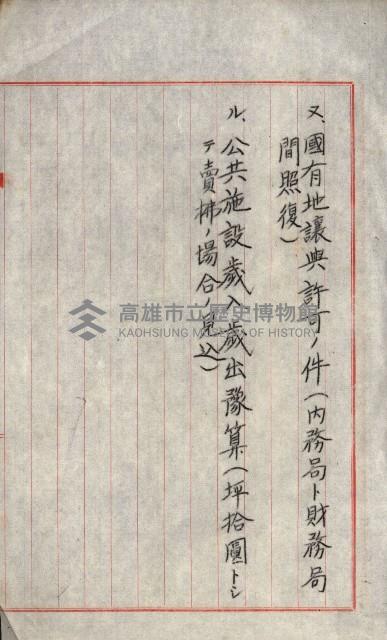 ヌ、國有地讓與許可ノ件(内務局ト財務局
間照復)
ル、公共施設歳入歳出豫算(坪拾圓トシ
テ賣拂ノ場合ノ見込)
高雄市立歷史博物館
KAOHSIUNG MUSEUM OF HISTORY